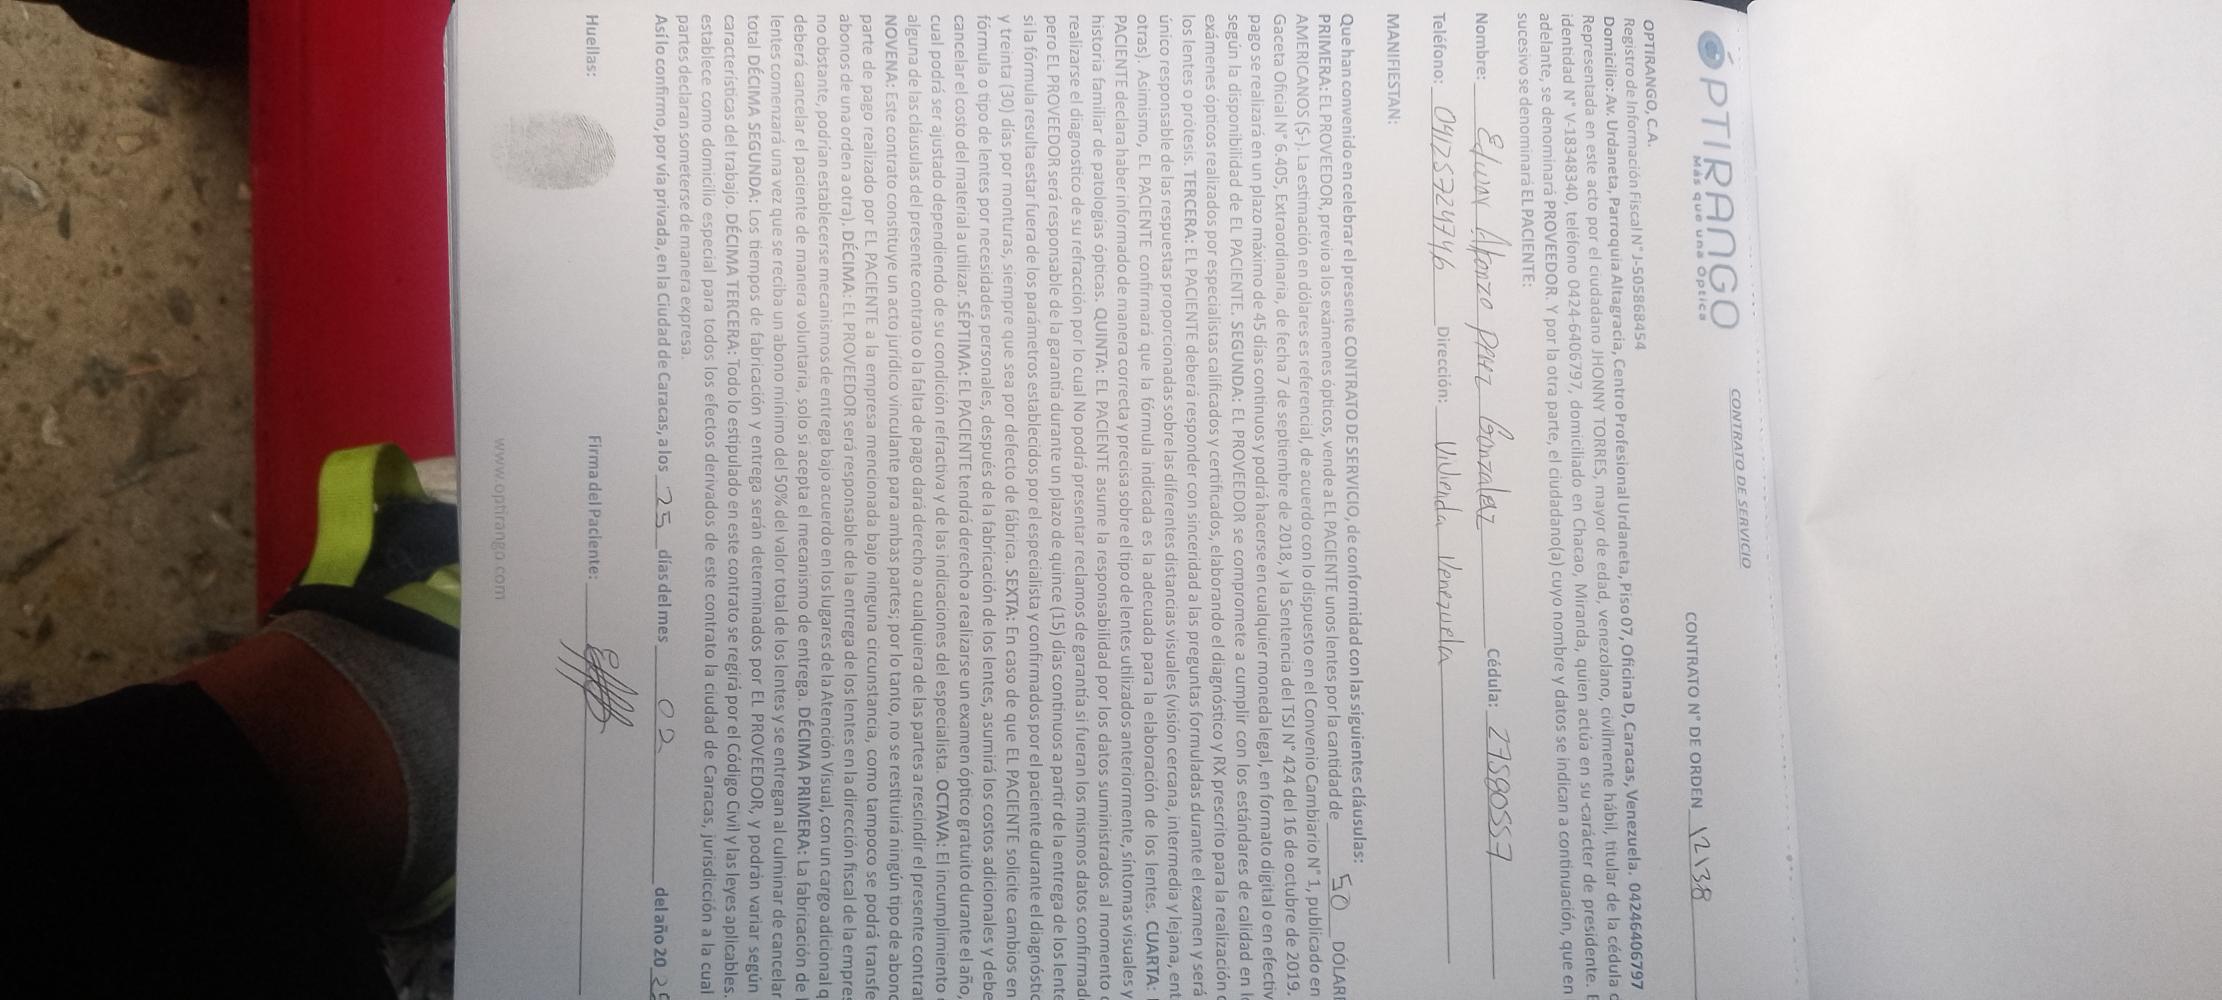 CONTRATO DE SERVICIO
ÓPTIRANGO
Más que una Óptica
CONTRATO N° DE ORDEN 12138
OPTIRANGO, C.A.
Registro de Información Fiscal N° J-505868454
Domicilio: Av. Urdaneta, Parroquia Altagracia, Centro Profesional Urdaneta, Piso 07, Oficina D, Caracas, Venezuela. 04246406797
Representada en este acto por el ciudadano JHONNY TORRES, mayor de edad, venezolano, civilmente hábil, titular de la cédula
identidad N° V-18348340, teléfono 0424-6406797, domiciliado en Chacao, Miranda, quien actúa en su carácter de presidente.
adelante, se denominará PROVEEDOR. Y por la otra parte, el ciudadano(a) cuyo nombre y datos se indican a continuación, que en
sucesivo se denominará EL PACIENTE:
Nombre: Eduar Alonzo Paez Gonzalez Cédula: 27580557
Teléfono: 04125724746 Dirección: Vivienda Venezuela
MANIFIESTAN:
Que han convenido en celebrar el presente CONTRATO DE SERVICIO, de conformidad con las siguientes cláusulas:
PRIMERA: EL PROVEEDOR, previo a los exámenes ópticos, vende a EL PACIENTE unos lentes por la cantidad de 50 DÓLAR
AMERICANOS ($-). La estimación en dólares es referencial, de acuerdo con lo dispuesto en el Convenio Cambiario N°1, publicado en
Gaceta Oficial N° 6.405, Extraordinaria, de fecha 7 de septiembre de 2018, y la Sentencia del TSJ N° 424 del 16 de octubre de 2019.
pago se realizará en un plazo máximo de 45 días continuos y podrá hacerse en cualquier moneda legal, en formato digital o en efectiv
según la disponibilidad de EL PACIENTE. SEGUNDA: EL PROVEEDOR se compromete a cumplir con los estándares de calidad en
exámenes ópticos realizados por especialistas calificados y certificados, elaborando el diagnóstico y RX prescrito para la realización
los lentes o prótesis. TERCERA: EL PACIENTE deberá responder con sinceridad a las preguntas formuladas durante el examen y será
único responsable de las respuestas proporcionadas sobre las diferentes distancias visuales (visión cercana, intermedia y lejana, ent
otras). Asimismo, EL PACIENTE confirmará que la fórmula indicada es la adecuada para la elaboración de los lentes. CUARTA:
PACIENTE declara haber informado de manera correcta y precisa sobre el tipo de lentes utilizados anteriormente, síntomas visuales y
historia familiar de patologías ópticas. QUINTA: EL PACIENTE asume la responsabilidad por los datos suministrados al momento
realizarse el diagnostico de su refracción por lo cual No podrá presentar reclamos de garantía si fueran los mismos datos confirmad
pero EL PROVEEDOR será responsable de la garantía durante un plazo de quince (15) días continuos a partir de la entrega de los lente
si la fórmula resulta estar fuera de los parámetros establecidos por el especialista y confirmados por el paciente durante el diagnóstic
y treinta (30) días por monturas, siempre que sea por defecto de fábrica. SEXTA: En caso de que EL PACIENTE solicite cambios en
fórmula o tipo de lentes por necesidades personales, después de la fabricación de los lentes, asumirá los costos adicionales y debe
cancelar el costo del material a utilizar. SÉPTIMA: EL PACIENTE tendrá derecho a realizarse un examen óptico gratuito durante el año,
cual podrá ser ajustado dependiendo de su condición refractiva y de las indicaciones del especialista. OCTAVA: El incumplimiento
alguna de las cláusulas del presente contrato o la falta de pago dará derecho a cualquiera de las partes a rescindir el presente contrat
NOVENA: Este contrato constituye un acto jurídico vinculante para ambas partes; por lo tanto, no se restituirá ningún tipo de abono
parte de pago realizado por EL PACIENTE a la empresa mencionada bajo ninguna circunstancia, como tampoco se podrá transfe
abonos de una orden a otra). DÉCIMA: EL PROVEEDOR será responsable de la entrega de los lentes en la dirección fiscal de la empres
no obstante, podrían establecerse mecanismos de entrega bajo acuerdo en los lugares de la Atención Visual, con un cargo adicional q
deberá cancelar el paciente de manera voluntaria, solo si acepta el mecanismo de entrega. DÉCIMA PRIMERA: La fabricación de
lentes comenzará una vez que se reciba un abono mínimo del 50% del valor total de los lentes y se entregan al culminar de cancelar
total DÉCIMA SEGUNDA: Los tiempos de fabricación y entrega serán determinados por EL PROVEEDOR, y podrán variar según
características del trabajo. DÉCIMA TERCERA: Todo lo estipulado en este contrato se regirá por el Código Civil y las leyes aplicables.
establece como domicilio especial para todos los efectos derivados de este contrato la ciudad de Caracas, jurisdicción a la cual
partes declaran someterse de manera expresa.
Así lo confirmo, por vía privada, en la Ciudad de Caracas, a los 25 días del mes 02 del año 20
Huellas: Firma del Paciente:
www.optirango.com